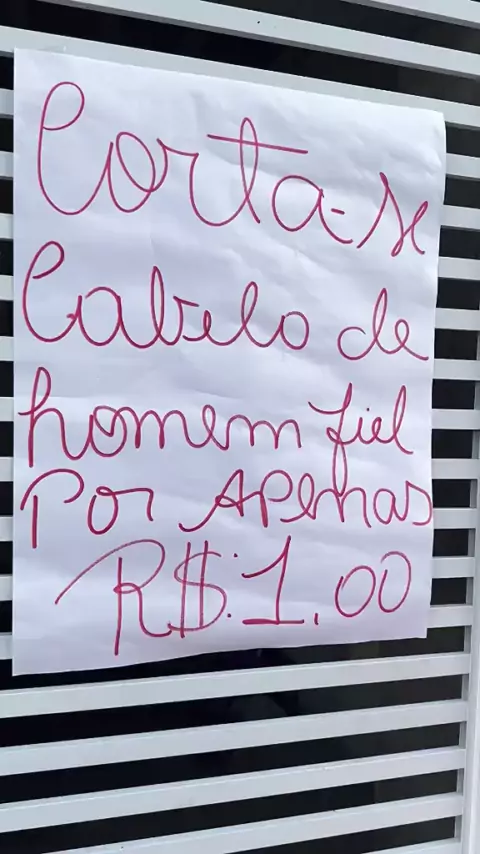 Corta-se
Cabelo de
homem fiel
Por APenas
R$:1,00